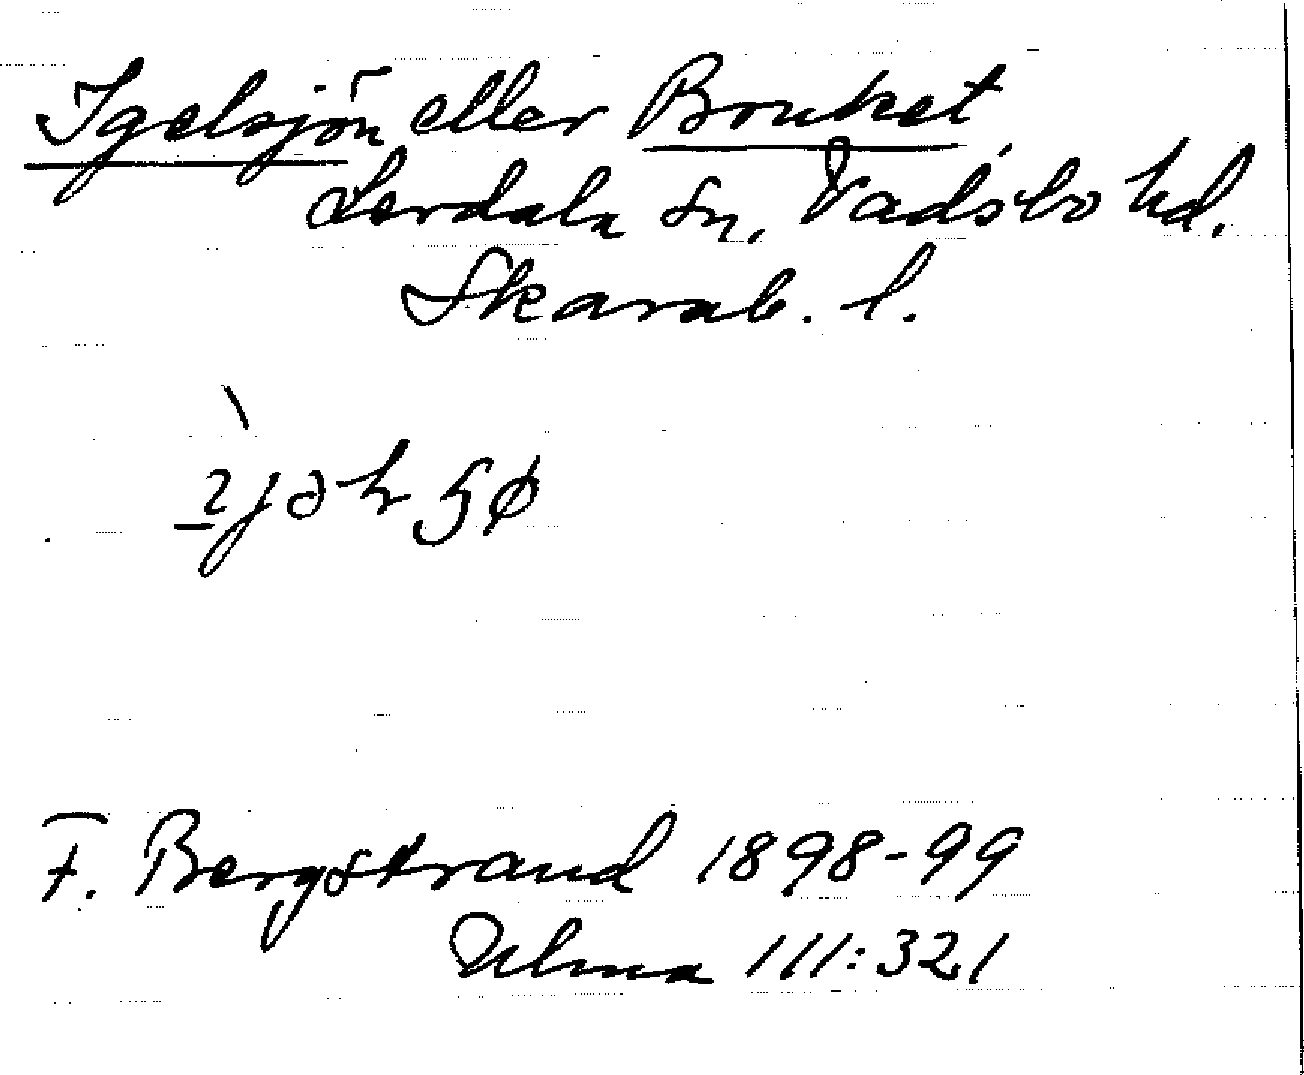 Igelsjön eller Bruket
Lerdala sn, Vadsbo hd.
Skarab. l.
F. Bergstrand 1898-99
Ulma 111:321